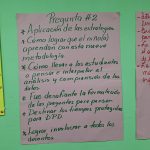 Pregunta #2
* Aplicación de las estrategias
* Cómo lograr que el niño(a)
aprendan con esta nueva
metodología
* Cómo llevar a los estudiantes
a pensar e interpretar el
análisis y comprensión de las
* Fue desafiante la formulación
de las preguntas para pensar
* Destinar los tiempos protegidos
para D.P.D.
* Lograr involucrar a todos los
docentes